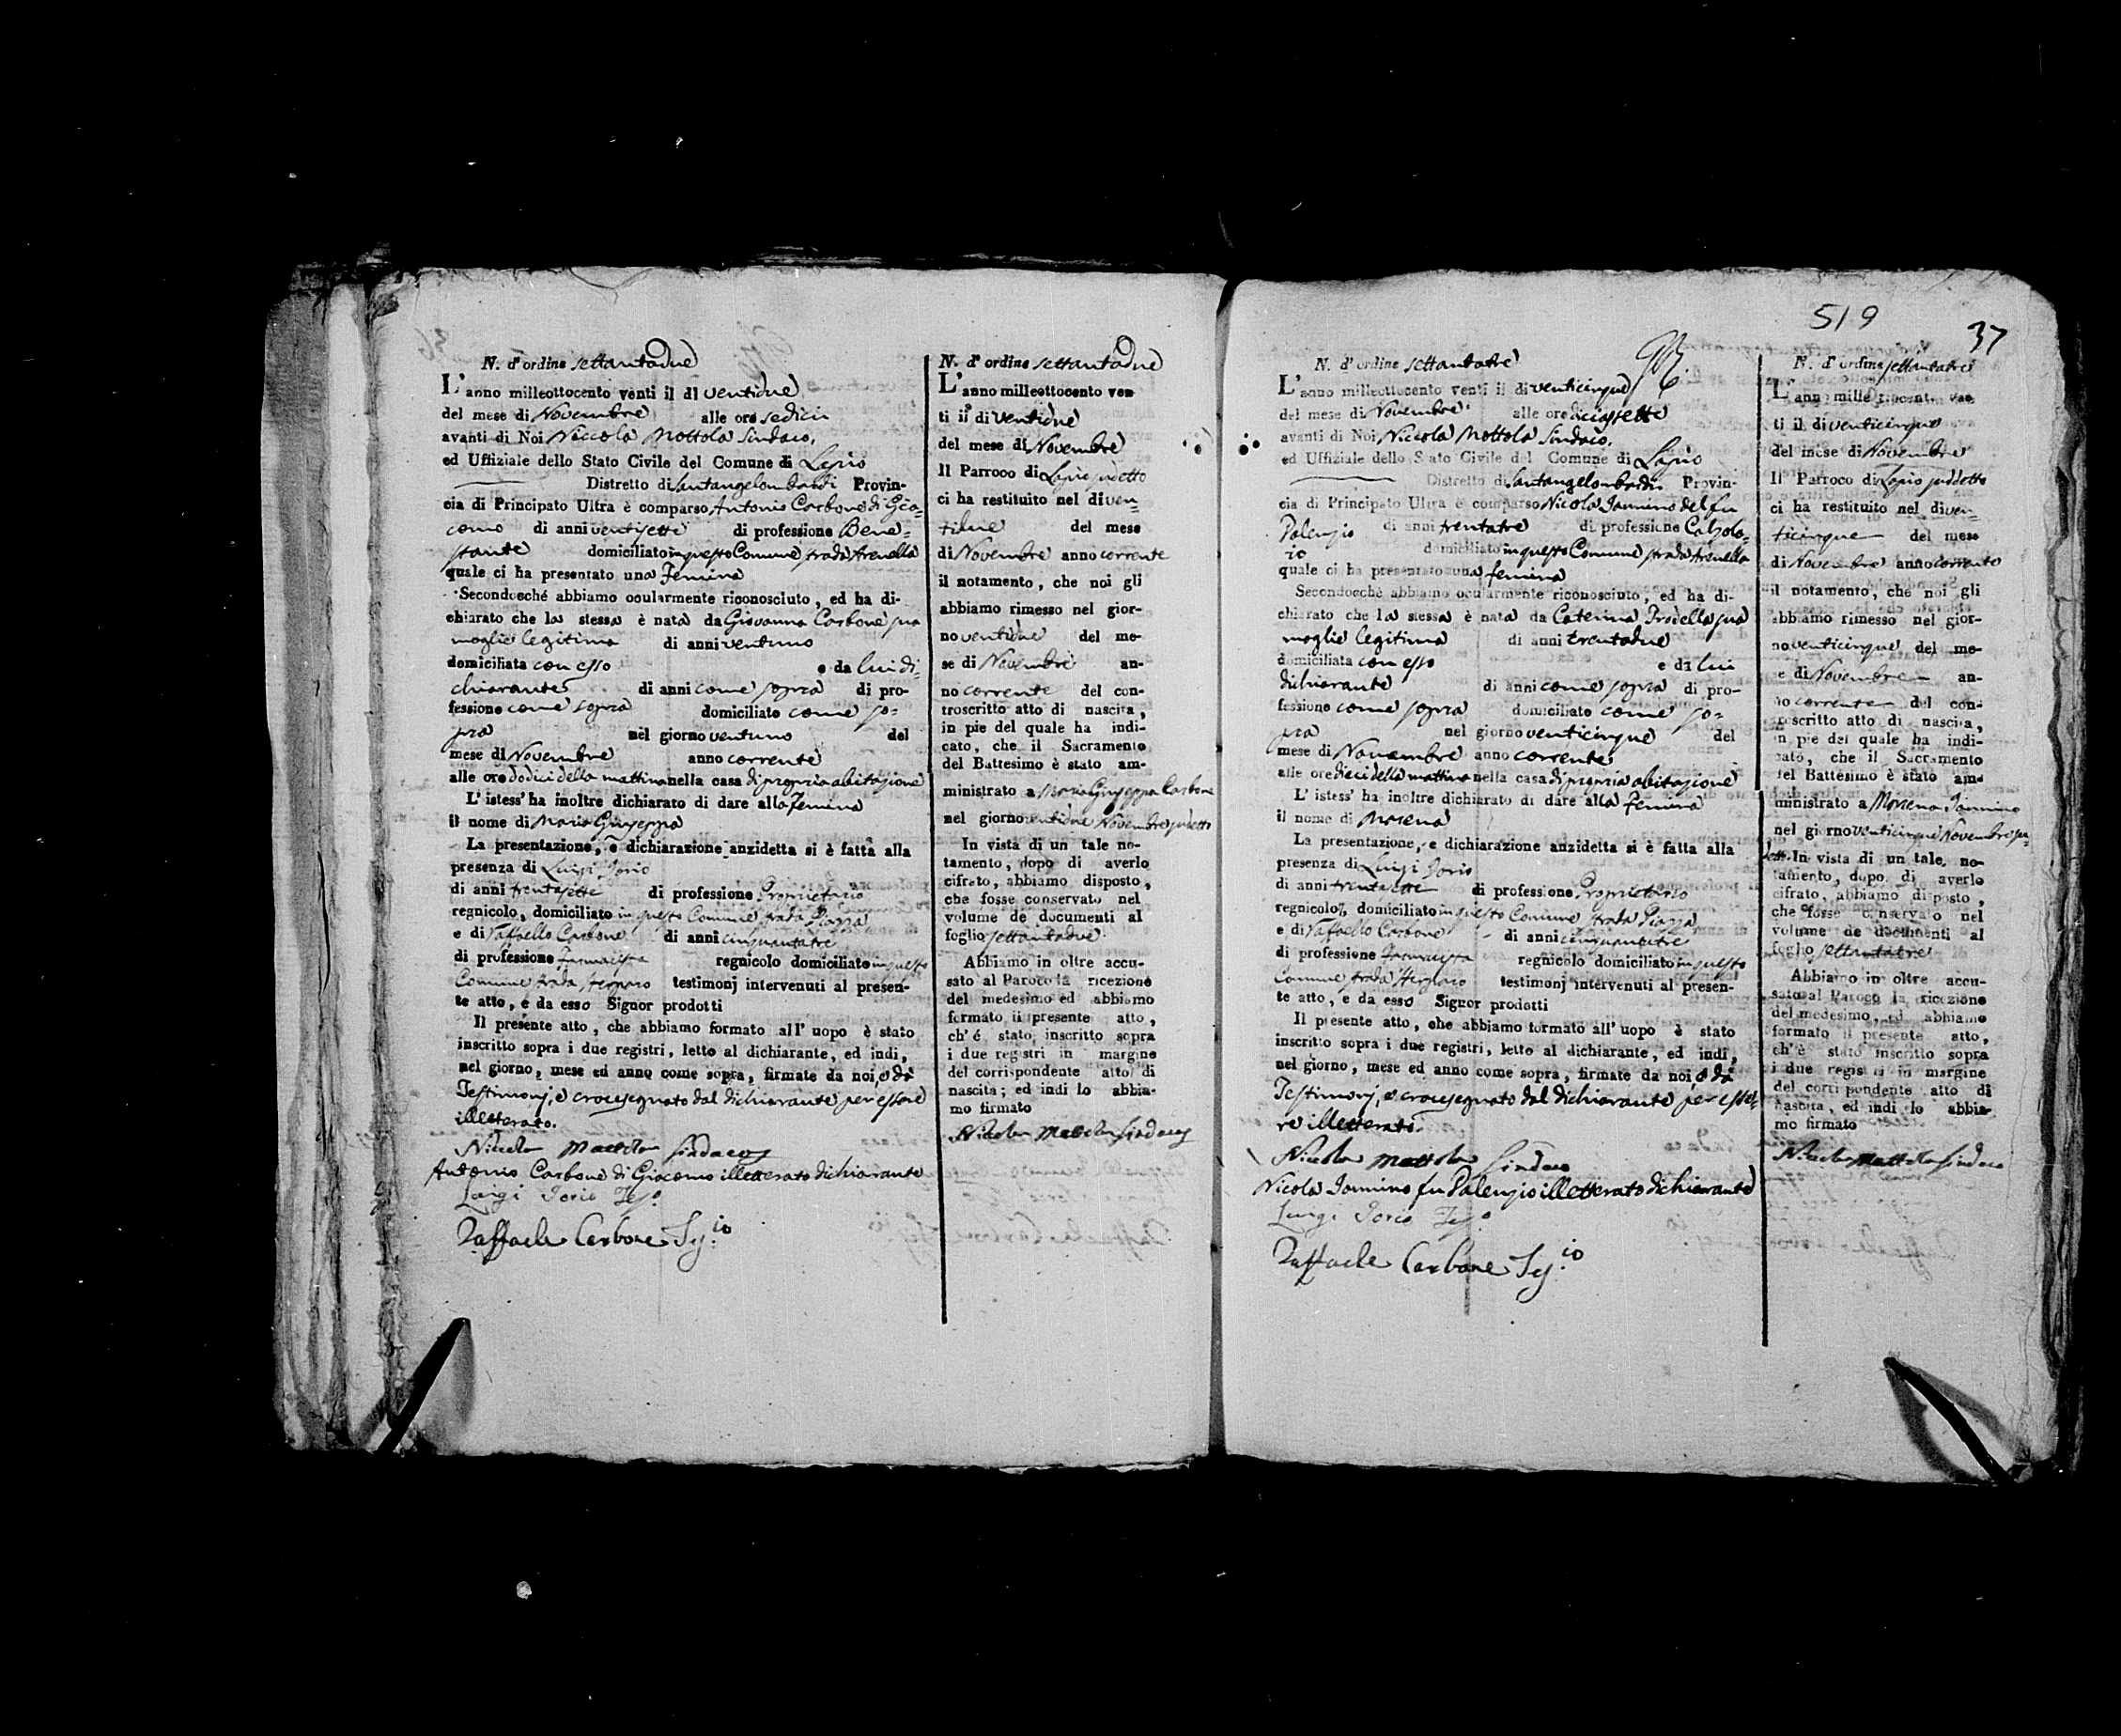 N. d'ordine settantadue
L'anno milleottocento venti il dì ventidue
del mese di Novembre alle ore sedici
avanti di Noi Niccola Mottola Sindaco,
ed Uffiziale dello Stato Civile del Comune di Lapio
Distretto di Santangelombardi Provin-
cia di Principato Ultra è comparso Antonio Carbone di Gia-
como di anni ventisette di professione Bene-
stante domiciliato in questo Comune strada Arenella
quale ci ha presentato una Femina
Secondocché abbiamo ocularmente riconosciuto, ed ha di-
chiarato che la stessa è nata da Giovanna Carbone sua
moglie legitima di anni ventuno
domiciliata con esso e da lui di-
chiarante di anni come sopra di pro-
fessione come sopra domiciliato come so-
pra nel giorno ventuno del
mese di Novembre anno corrente
alle ore dodici della mattina nella casa di propria abitazione
L'istess' ha inoltre dichiarato di dare alla Femina
il nome di Maria Giuseppa
La presentazione, e dichiarazione anzidetta si è fatta alla
presenza di Luigi Iorio
di anni trentasette di professione Proprietario
regnicolo, domiciliato in questo Comune strada Piazza
e di Raffaello Carbone di anni cinquantatre
di professione Farmacista regnicolo domiciliato in questo
Comune strada testimonj intervenuti al presen-
te atto, e da esso Signor prodotti
Il presente atto, che abbiamo formato all' uopo è stato
inscritto sopra i due registri, letto al dichiarante, ed indi,
nel giorno, mese ed anno come sopra, firmate da noi, e da
Testimonj, e crocesegnato dal dichiarante per essere
illetterato.
Nicola Mottola Sindaco
Antonio Carbone di Giacomo illetterato dichiarante
Luigi Iorio
Raffaele Carbone
N. d'ordine settantadue
L'anno milleottocento ven
ti il di ventidue
del mese di Novembre
Il Parroco di Lapio sudetto
ci ha restituito nel di ven-
tidue del mese
di Novembre anno corrente
il notamento, che noi gli
abbiamo rimesso nel gior-
no ventidue del me-
se di Novembre an-
no corrente del con-
troscritto atto di nascita,
in pie del quale ha indi-
cato, che il Sacramento
del Battesimo è stato am-
ministrato a Maria Giuseppa Carbone
nel giorno ventidue Novembre sudetto
In vista di un tale no-
tamento, dopo di averlo
cifrato, abbiamo disposto,
che fosse conservato nel
volume de documenti al
foglio settantadue
Abbiamo in oltre accu-
sato al Paroco la ricezione
del medesimo ed abbiamo
formato il presente atto,
ch'é stato inscritto sopra
i due registri in margine
del corrispondente atto di
nascita; ed indi lo abbia-
mo firmato
Nicola Mottola Sindaco
519
37
N. d'ordine settantatre
L'anno milleottocento venti il di venticinque
del mese di Novembre alle ore diciassette
avanti di Noi Niccola Mottola Sindaco,
ed Uffiziale dello Stato Civile del Comune di Lapio
Distretto di Santangelombardi Provin-
cia di Principato Ultra è comparso Nicola Iannino del fu
Palenzio di anni trentatre di professione Calzola-
io domiciliato in questo Comune strada Arenella
quale ci ha presentato una femina
Secondocchè abbiamo ocularmente riconosciuto, ed ha di-
chiarato che la stessa è nata da Caterina sua
moglie legitima di anni trentadue
domiciliata con esso e da lui
dichiarante di anni come sopra di pro-
fessione come sopra domiciliato come so-
pra nel giorno venticinque del
mese di Novembre anno corrente
alle ore dieci della mattina nella casa di propria abitazione
L'istess' ha inoltre dichiarato di dare alla Femina
il nome di Morena
La presentazione, e dichiarazione anzidetta si è fatta alla
presenza di Luigi Iorio
di anni trentasette di professione Proprietario
regnicolo, domiciliato in questo Comune strada Piazza
e di Raffaello Carbone di anni cinquantatre
di professione Farmacista regnicolo domiciliato in questo
Comune strada testimonj intervenuti al presen-
te atto, e da esso Signor prodotti
Il presente atto, che abbiamo formato all' uopo è stato
inscritto sopra i due registri, letto al dichiarante, ed indi,
nel giorno, mese ed anno come sopra, firmate da noi, e da
Testimonj, e crocesegnato dal dichiarante per esse-
re illetterato.
Nicola Mottola Sindaco
Nicola Iannino fu Palenzio illetterato dichiarante
Luigi Iorio
Raffaele Carbone
N. d'ordine settantatre
L'anno milleottocento ven
ti il di venticinque
del mese di Novembre
Il Parroco di Lapio suddetto
ci ha restituito nel di ven-
ticinque del mese
di Novembre anno corrente
il notamento, che noi gli
abbiamo rimesso nel gior-
no venticinque del me-
se di Novembre an-
no corrente del con-
troscritto atto di nascita,
in pie del quale ha indi-
cato, che il Sacramento
del Battesimo è stato am-
ministrato a Morena Iannino
nel giorno venticinque Novembre su-
detto. In vista di un tale no-
tamento, dopo di averlo
cifrato, abbiamo disposto,
che fosse conservato nel
volume de documenti al
foglio settantatre
Abbiamo in oltre accu-
sato al Paroco la ricezione
del medesimo, ed abbiamo
formato il presente atto,
ch'è stato inscritto sopra
i due registri in margine
del corrispondente atto di
nascita, ed indi lo abbia-
mo firmato
Nicola Mottola Sindaco